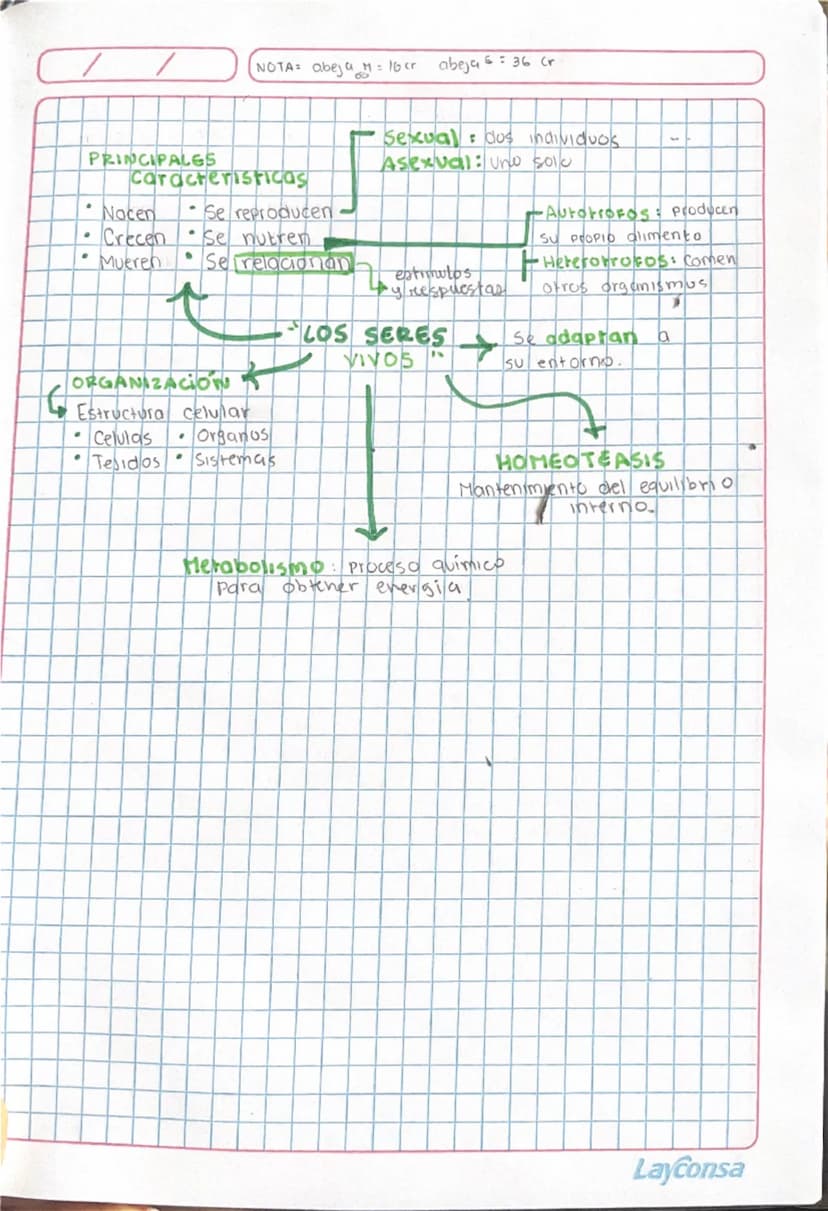 NOTA= abeja M = 16 cr abeja = 36 cr
Sexual : dos individuos
Asexual : uno solo
PRINCIPALES
Características
• Nacen • Se reproducen
• Crecen • Se nutren
• Mueren • Se relacionan
estimulos
y respuestas
Autotrofos : producen
su propio alimento
Heterotrofos : comen
otros organismos
"LOS SERES
VIVOS"
Se adaptan a
su entorno.
ORGANIZACIÓN
Estructura celular
• Celulas • Organos
• Tejidos • Sistemas
HOMEOTEASIS
Mantenimiento del equilibrio
interno.
Metabolismo : proceso químico
para obtener energía
Layconsa